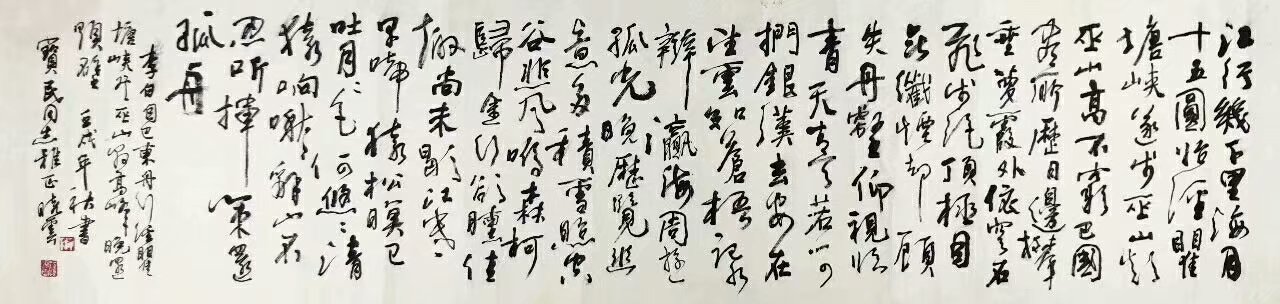 江行幾千里海月
十五圓始經瞿
塘峽遂步巫山巔
巫山高不窮巴國
盡所歷日邊攀
垂蘿霞外依穹石
飛步凌頂極目
無纖煙却顧
失丹壑仰視臨
青天青天若可
捫銀漢去安在
望雲知蒼梧記水
辨瀛海周遊
孤光晚歷覽幽
意多積雪照空
谷悲風鳴森柯
歸途行欲曛佳
趣尚未歇江寒
早啼猿松暝已
吐月月色何悠悠清
猿响啾啾辭山不
忍听揮策還
孤舟
李白自巴東舟行經瞿
塘峽登巫山最高峰晚還
題壁 壬戌年秋書
寶民同志雅正 曉雲